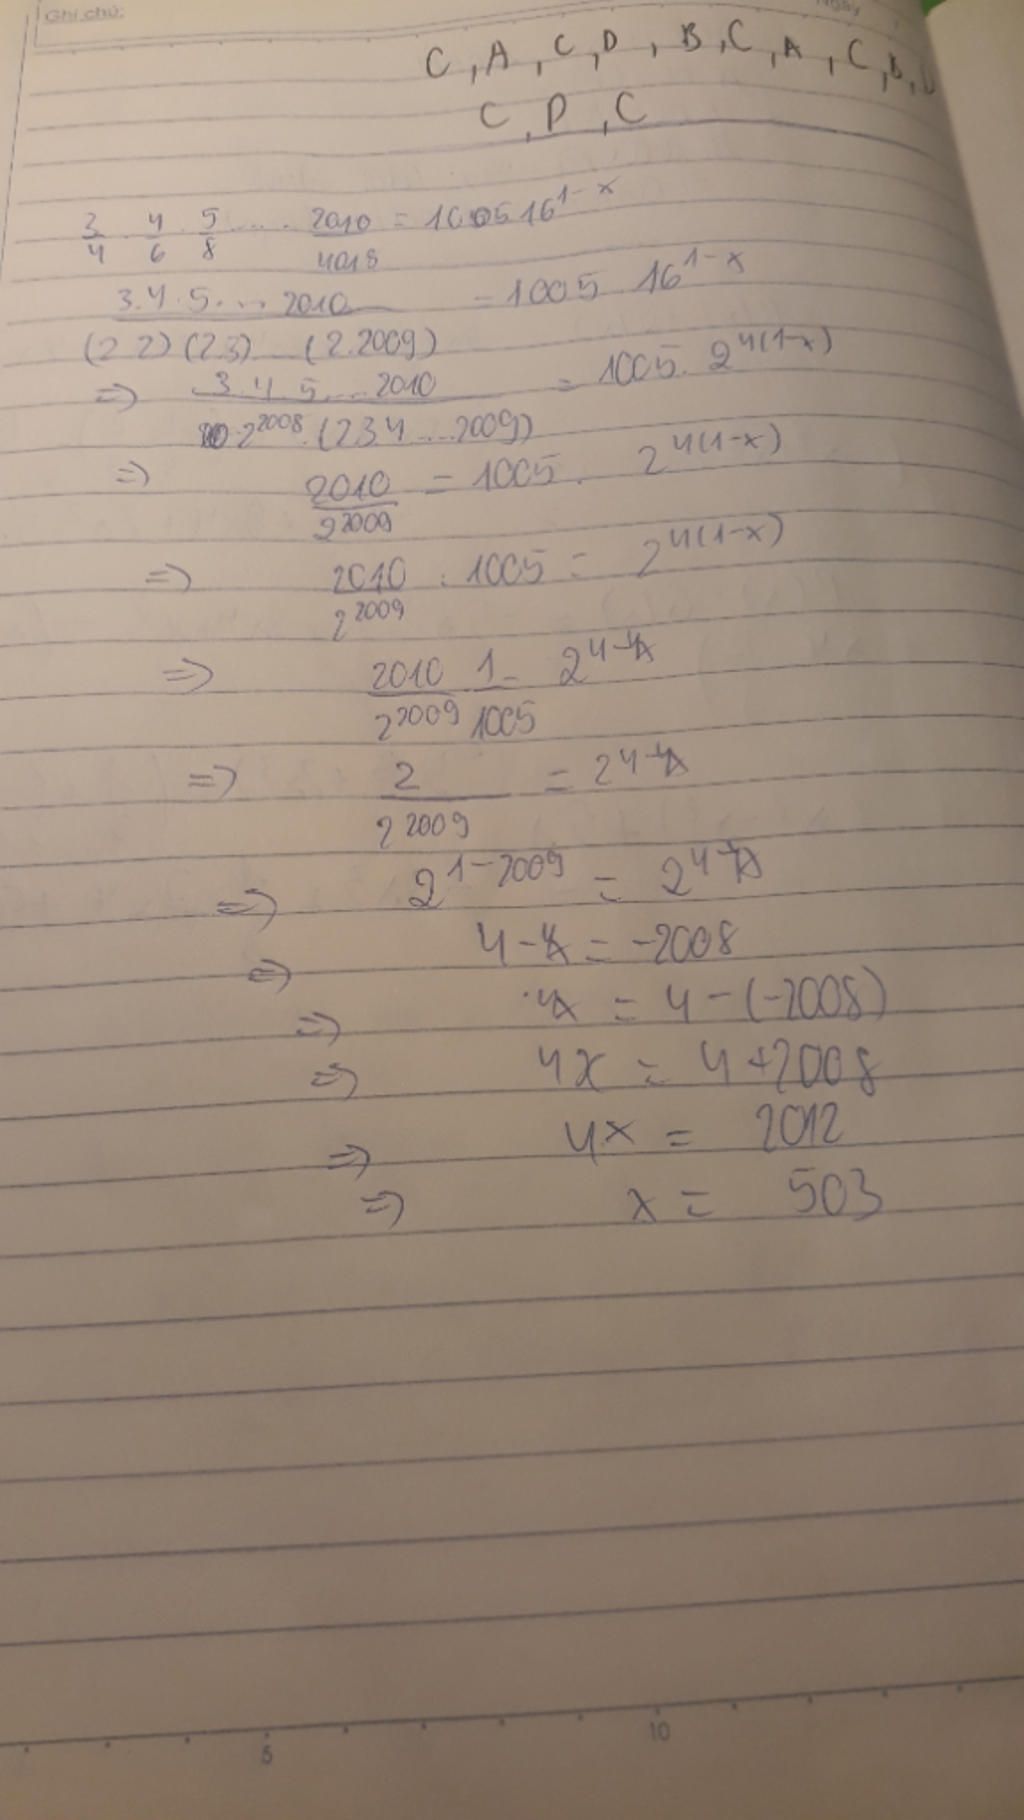 Ghi chú:
Ngày
C, A, C, D, B, C, A, C, B,
C, D, C
3/4 . 4/6 . 5/8 .... 2010/4018 = 1005 16^(1-x)
3.4.5.... 2010 / (2 2) (2 3) ... (2.2009) = 1005 16^(1-x)
=> 3.4.5....2010 / 2^2008 . (2 3 4 ...2009) = 1005. 2^(4(1-x))
=> 2010 / 2^2009 = 1005. 2^(4(1-x))
=> 2010 / 2^2009 : 1005 = 2^(4(1-x))
=> 2010 / 2^2009 1 / 1005 = 2^(4-4x)
=> 2 / 2^2009 = 2^(4-4x)
=> 2^(1-2009) = 2^(4-4x)
=> 4-4x = -2008
=> 4x = 4-(-2008)
=> 4x = 4+2008
=> 4x = 2012
=> x = 503
5 10